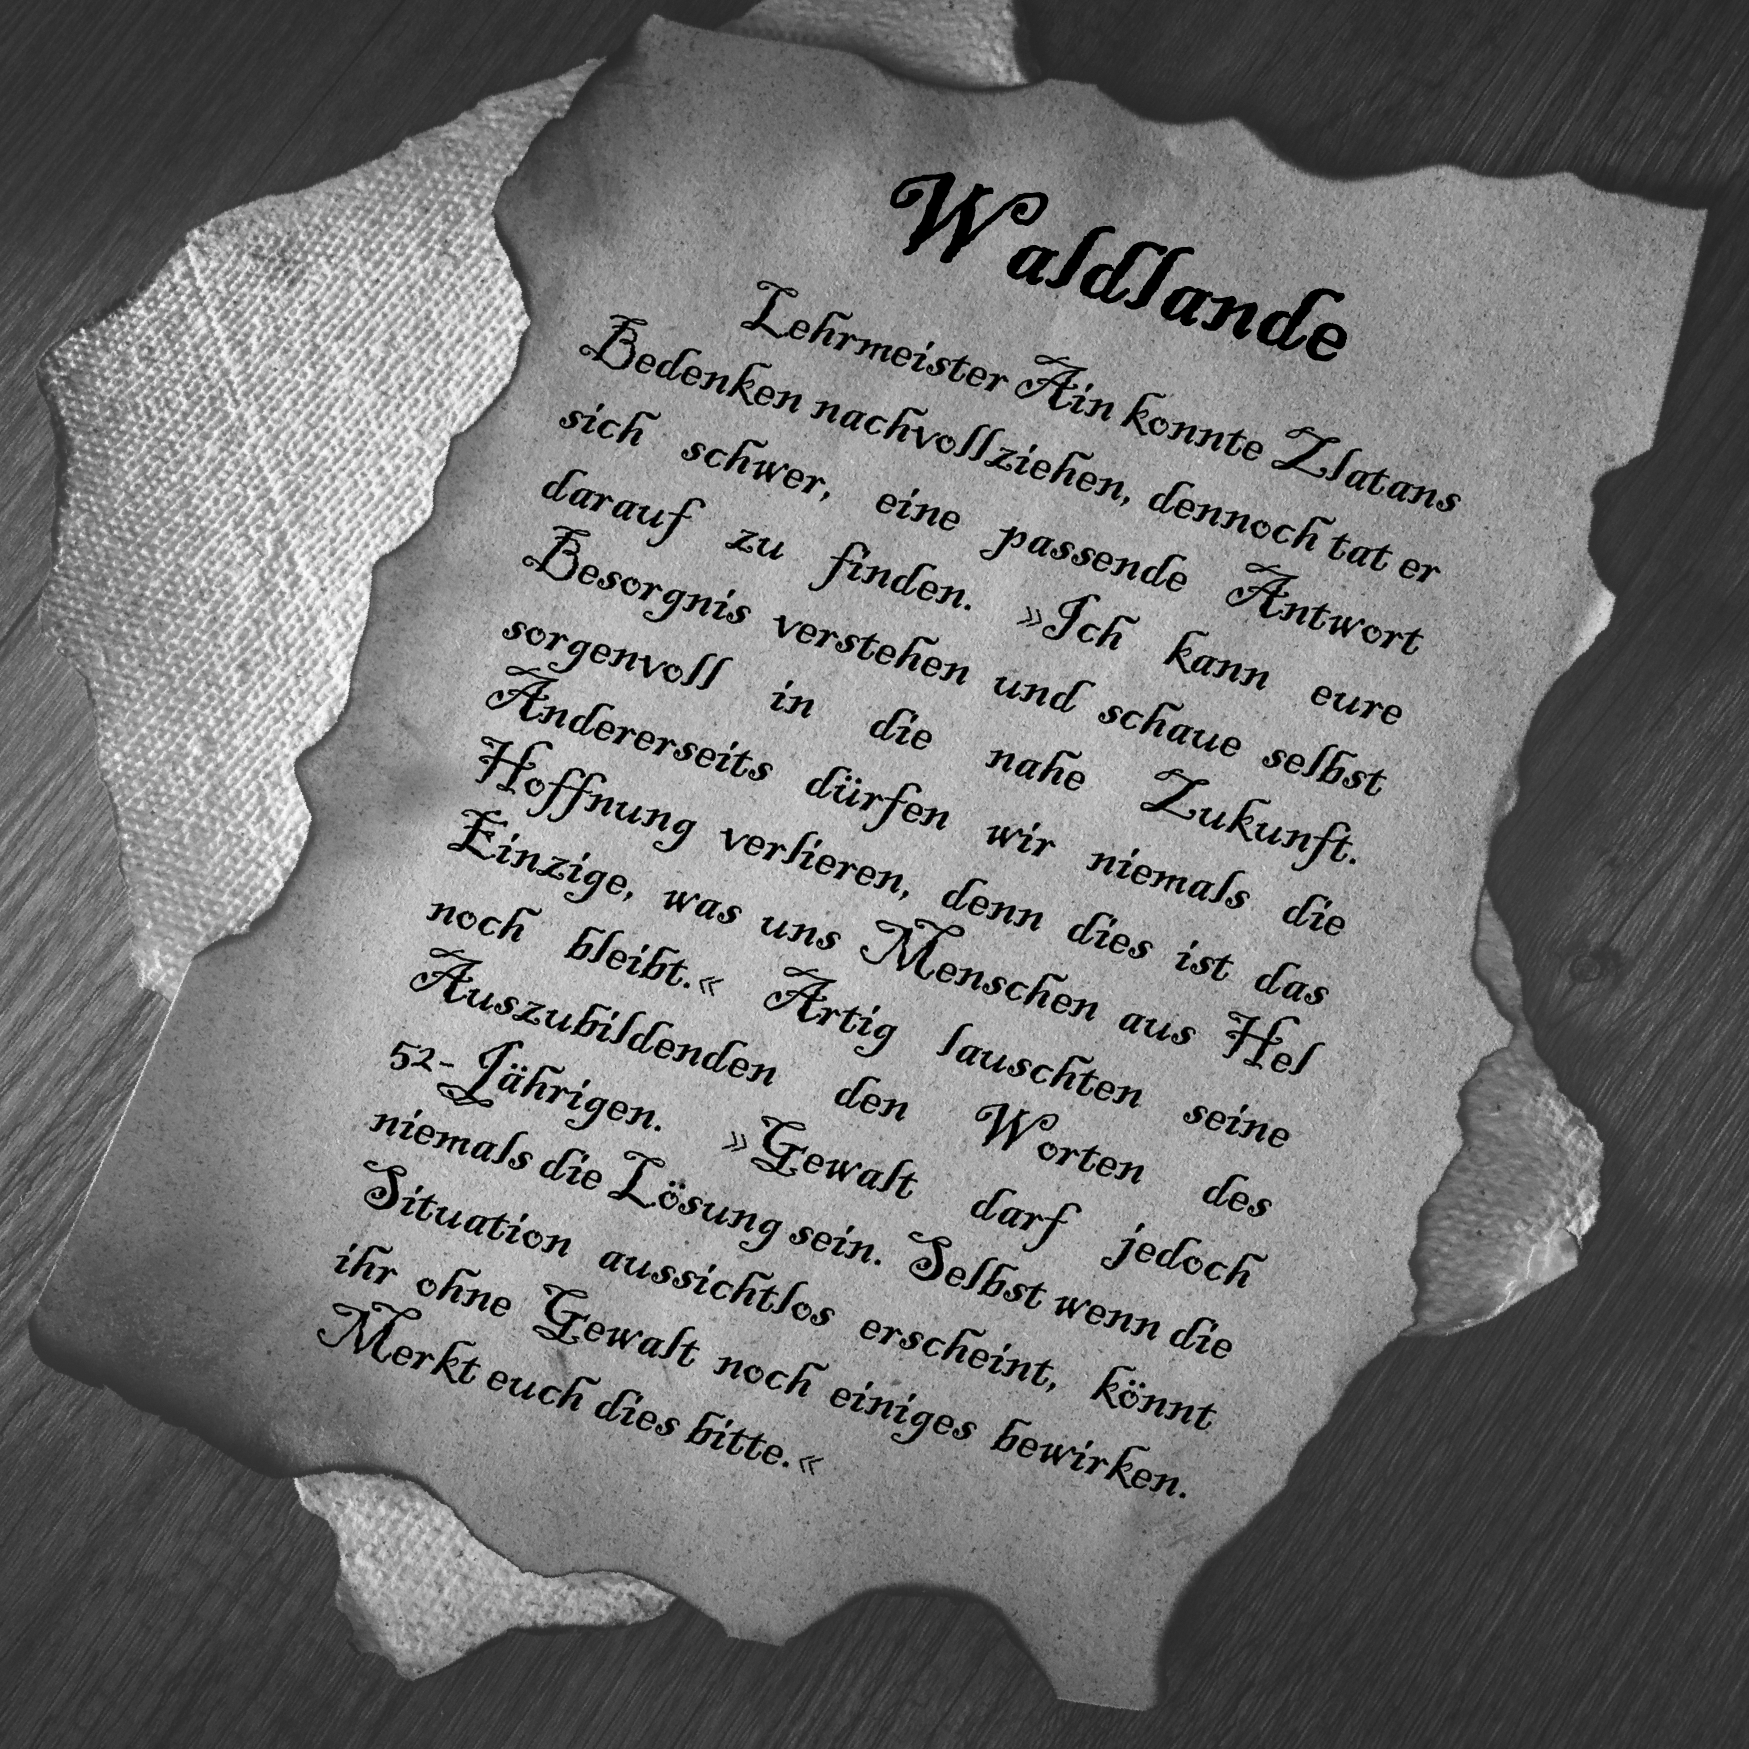 Waldlande
Lehrmeister Ain konnte Zlatans
Bedenken nachvollziehen, dennoch tat er
sich schwer, eine passende Antwort
darauf zu finden. »Ich kann eure
Besorgnis verstehen und schaue selbst
sorgenvoll in die nahe Zukunft.
Andererseits dürfen wir niemals die
Hoffnung verlieren, denn dies ist das
Einzige, was uns Menschen aus Hel
noch bleibt.« Artig lauschten seine
Auszubildenden den Worten des
52-Jährigen. »Gewalt darf jedoch
niemals die Lösung sein. Selbst wenn die
Situation aussichtlos erscheint, könnt
ihr ohne Gewalt noch einiges bewirken.
Merkt euch dies bitte.«